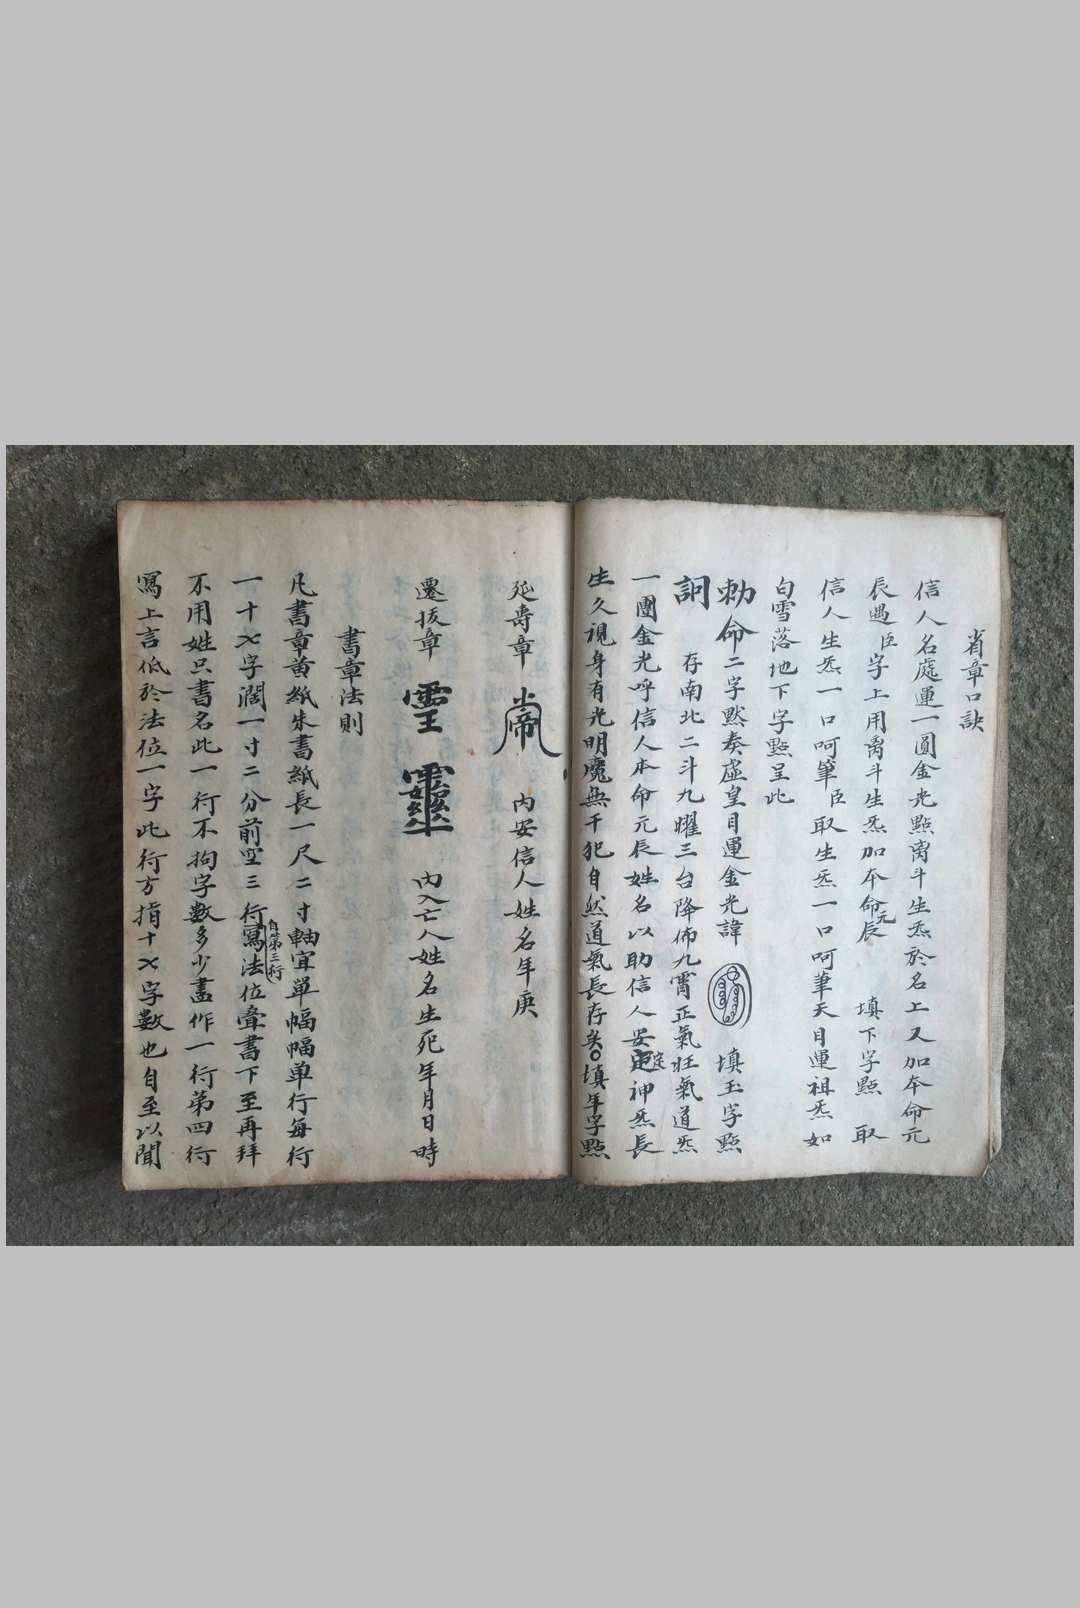 省章口訣
信人名處運一圓金光點离斗生炁於名上又加本命元
辰遇臣字上用离斗生炁加本命元辰 填下字點 取
信人生炁一口呵筆臣取生炁一口呵筆天目運祖炁如
白雪落地下字點呈此
勅命二字黙奏虛皇目運金光諱 填玉字點
詞 存南北二斗九曜三台降佈九霄正氣旺氣道炁
一團金光呼信人本命元辰姓名以助信人安定神炁長
生久視身有光明魔無干犯自然道氣長存矣○填年字點
延壽章 內安信人姓名年庚
遷拔章 靈 內入亡人姓名生死年月日時
書章法則
凡書章黃紙朱書紙長一尺二寸軸宜單幅幅單行每行
一十七字濶一寸二分前空三行自第三行寫法位彙書下至再拜
不用姓只書名此一行不拘字數多少盡作一行第四行
寫上言低於法位一字此行方指十七字數也自至以聞